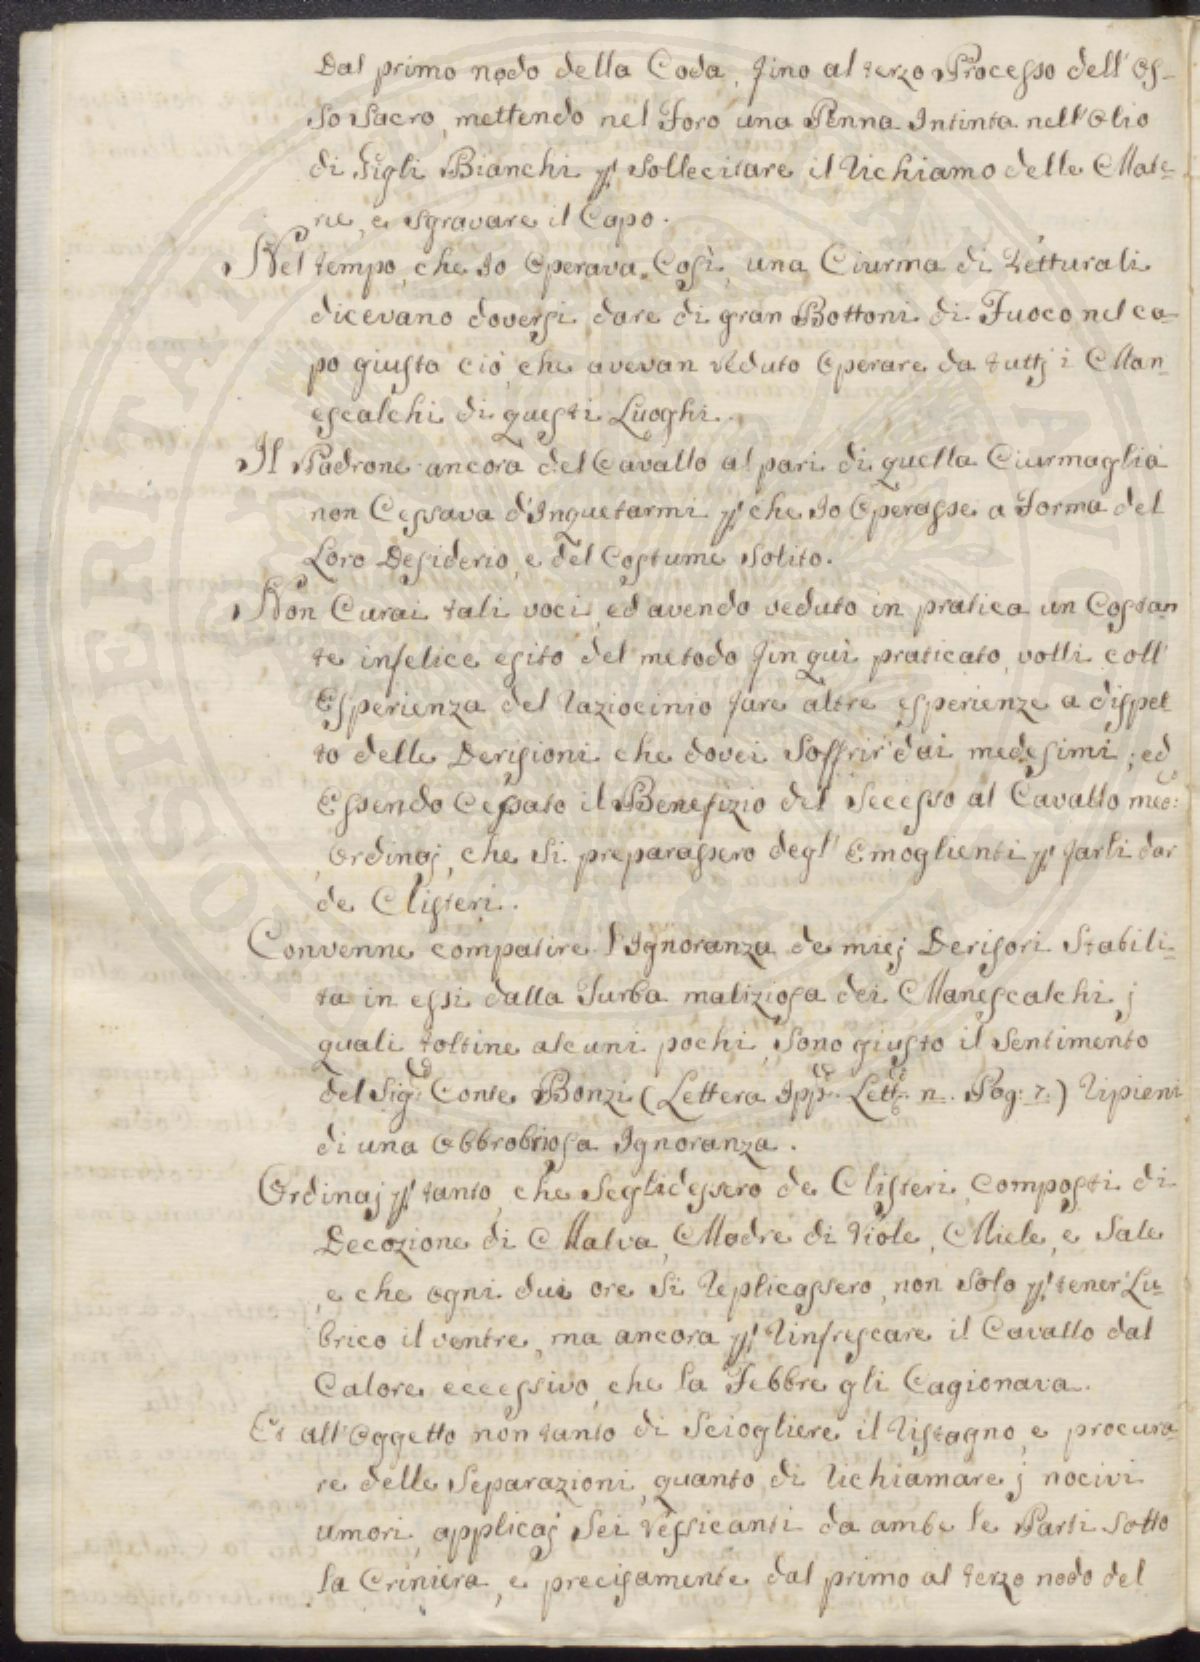 Dal primo nodo della Coda, fino al terzo Processo dell'Os-
so Sacro, mettendo nel Foro una Penna Intinta nell'Olio
di Gigli Bianchi p. Sollecitare il Richiamo delle Mate-
rie, e Sgravare il Capo.
Nel tempo, che Io Operava Così, una Ciurma di Vetturali
dicevano doversi dare di gran Bottoni di Fuoco nel ca-
po giusta ciò, che avevan veduto Operare da tuttj i Man-
escalchi di questi Luoghi.
Il Padrone ancora del Cavallo al pari di quella Ciurmaglia
non Cessava d'Inquetarmi p. che Io Operasse a Forma del
Loro Desiderio, e del Costume Solito.
Non Curai tali voci, ed avendo veduto in pratica un Costan
te infelice esito del metodo fin quì praticato, volli coll'
Esperienza del Raziocinio fare altre esperienze a dispet-
to delle Derisioni che dovei Soffrir dai medesimi; ed
Essendo Cessato il Benefizio del Secesso al Cavallo med:
Ordinaj, che si preparassero degl'Emoglienti p. farli dar
de Clisteri.
Convenne compatire l'Ignoranza de miej Derisori Stabili-
ta in essi dalla Turba maliziosa dei Manescalchi, j
quali toltine alcuni pochi, Sono giusto il Sentimento
del Sig: Conte Bonzi (Lettera Ipp. Lett. n. Pag: 7:) Ripieni
di una Obbrobriosa Ignoranza.
Ordinaj p. tanto, che Seglidessero de Clisteri, Composti di
Decozione di Malva, Madre di Viole, Miele, e Sale
, e che ogni due ore si Replicassero, non Solo p. tener Lu-
brico il ventre, ma ancora p. Rinfrescare il Cavallo dal
Calore eccessivo, che la Febbre gli Cagionava.
Et all'Oggetto non tanto di Sciogliere il Ristagno, e procura-
re delle Separazioni, quanto di Richiamare j nocivi
umori, applicaj Sei Vessicanti da ambe le Parti Sotto
la Criniera, e precisamente dal primo al terzo nodo del